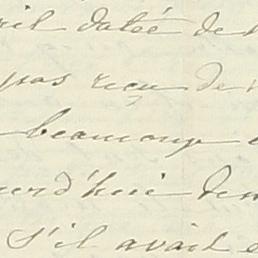 ril datée de
pas reçu de
beaucoup
urd'hui de
S'il avait